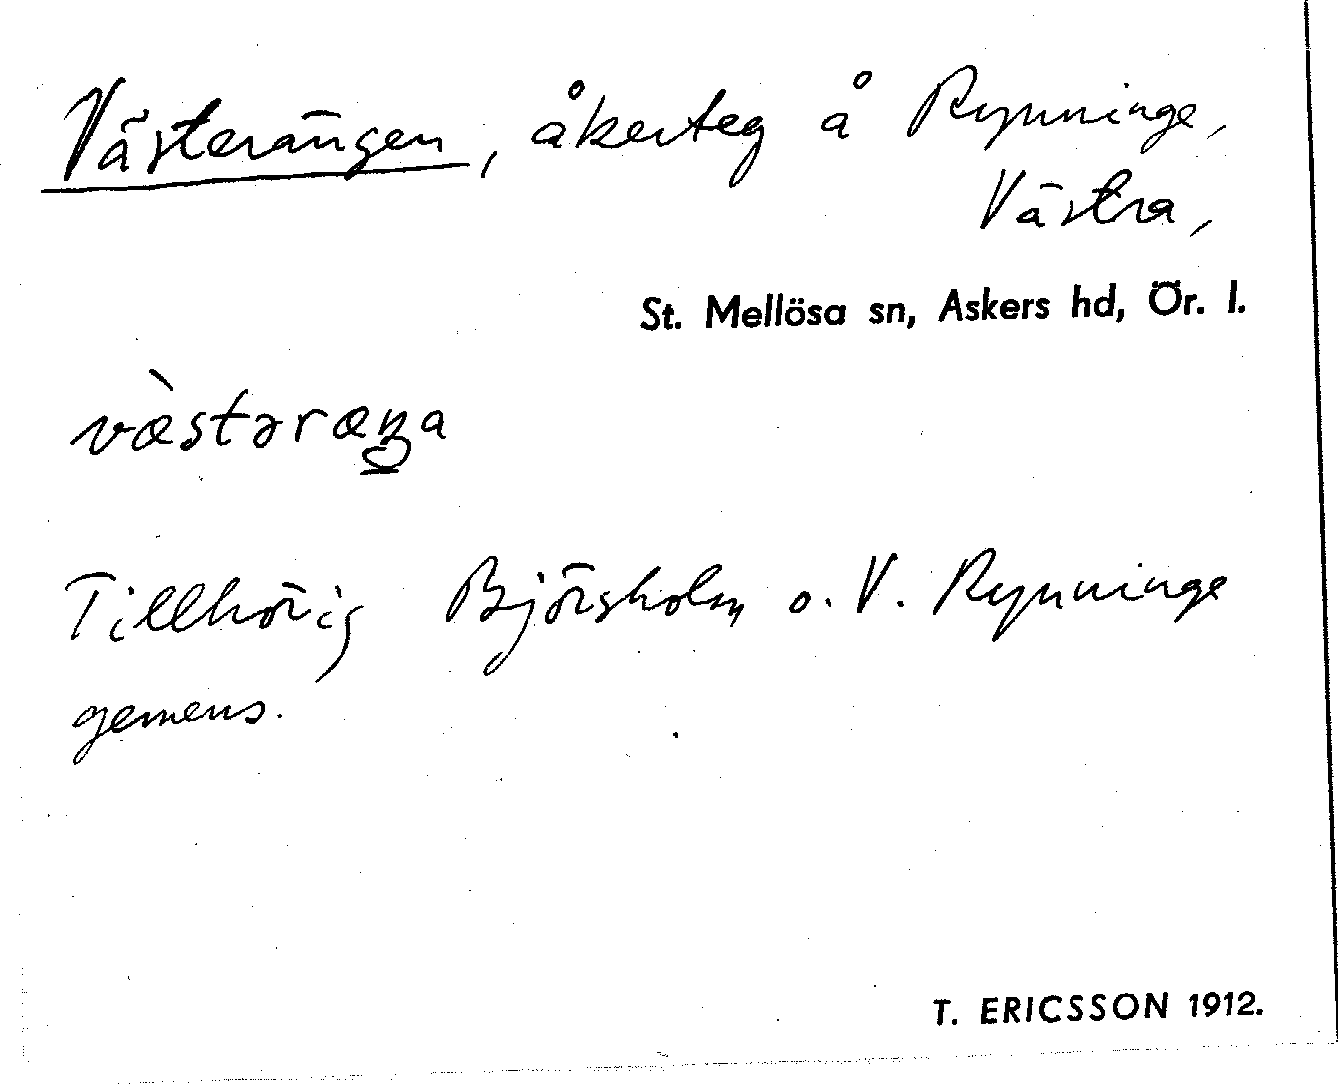 Västerängen, åkerteg å Rynninge,
Västra,
St. Mellösa sn, Askers hd, Ör. l.
Tillhörig Björsholm o. V. Rynninge
gemens.
T. ERICSSON 1912.